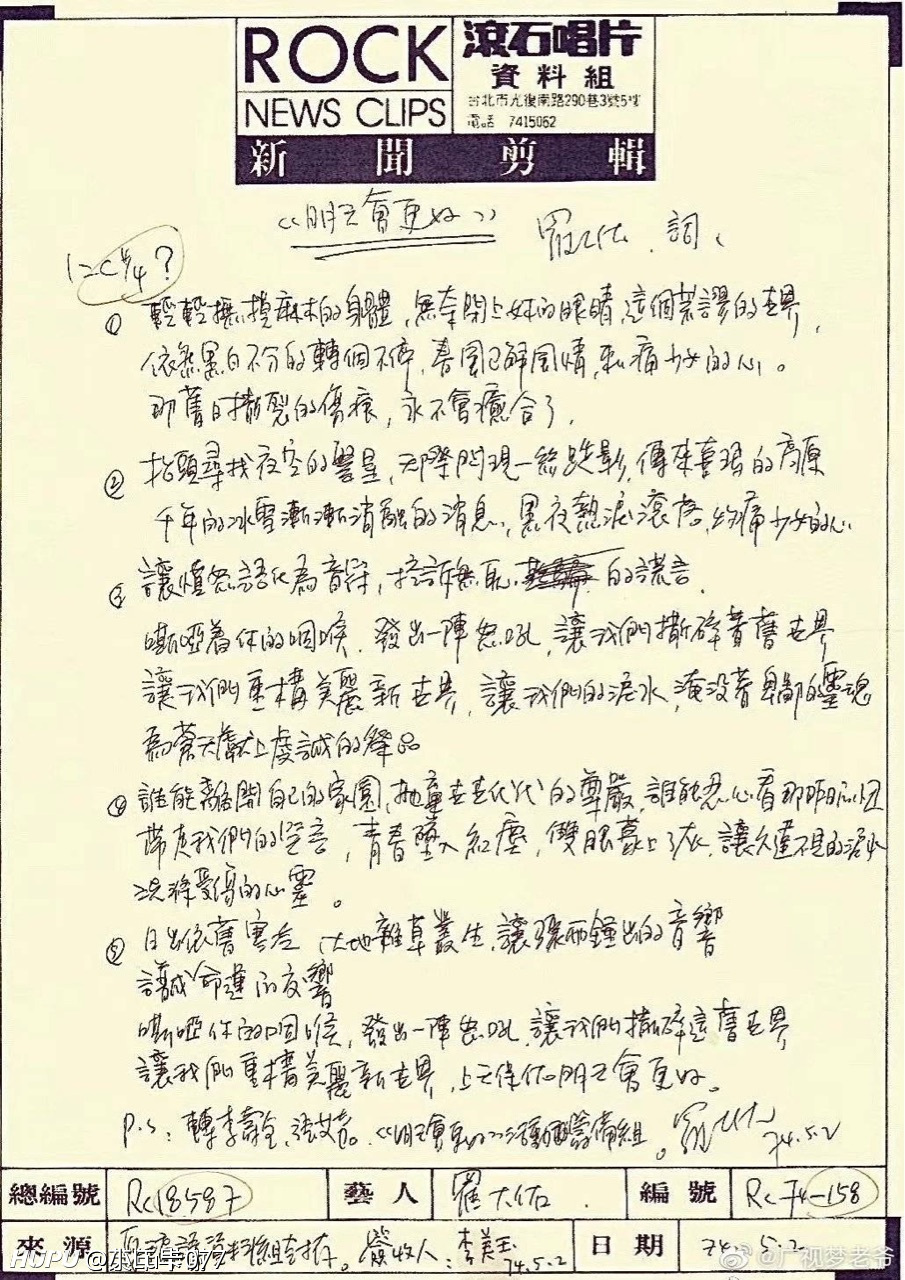 ROCK
NEWS CLIPS
滾石唱片
資料組
台北市光復南路290巷3號5樓
電話 7415062
新聞剪輯
《明天會更好》 羅大佑.詞、
1=C 4/4?
① 輕輕撫摸麻木的身體,無奈閉上妳的眼睛,這個荒謬的世界,
依然黑白不分的轉個不停,春風已解風情,刺痛少女的心。
那舊日撕裂的傷痕,永不會癒合了,
② 抬頭尋找夜空的雙星,天際閃現一絲跌影,傳來喜瑪的高原
千年的冰雪漸漸消融的消息,黑夜熱淚滾落,灼痛少女的心
③ 讓憤怒語化為音符,控訴無恥 的謊言
嘶啞着你的咽喉,發出一陣怒吼,讓我們撕碎着舊世界
讓我們重構美麗新世界,讓我們的淚水,淹没着卑鄙的靈魂
為蒼天獻上虔誠的祭品
④ 誰能離開自己的家園,拋棄世世代代的尊嚴,誰能忍心看那昨日的
帶走我們的 言,青春墜入紅塵,雙眼蒙上了灰,讓久違不見的淚水
洗滌受傷的心靈。
⑤ 日出依舊寒冷 大地雜草叢生,讓 鐘出的音響
譜成命運的交響
嘶啞你的咽喉,發出一陣怒吼,讓我們撕碎這舊世界
讓我們重構美麗新世界,上天保佑明天會更好。
P.S:轉李壽全,張艾嘉。《明天會更好》活動籌備組。羅大佑 74.5.2
總編號 Rc18587 藝人 羅大佑. 編號 Rc-74-158
來源 資料組 簽收人:李美玉 74.5.2 日期 74. 5. 2
HUPU @ 077
@广视梦老爷